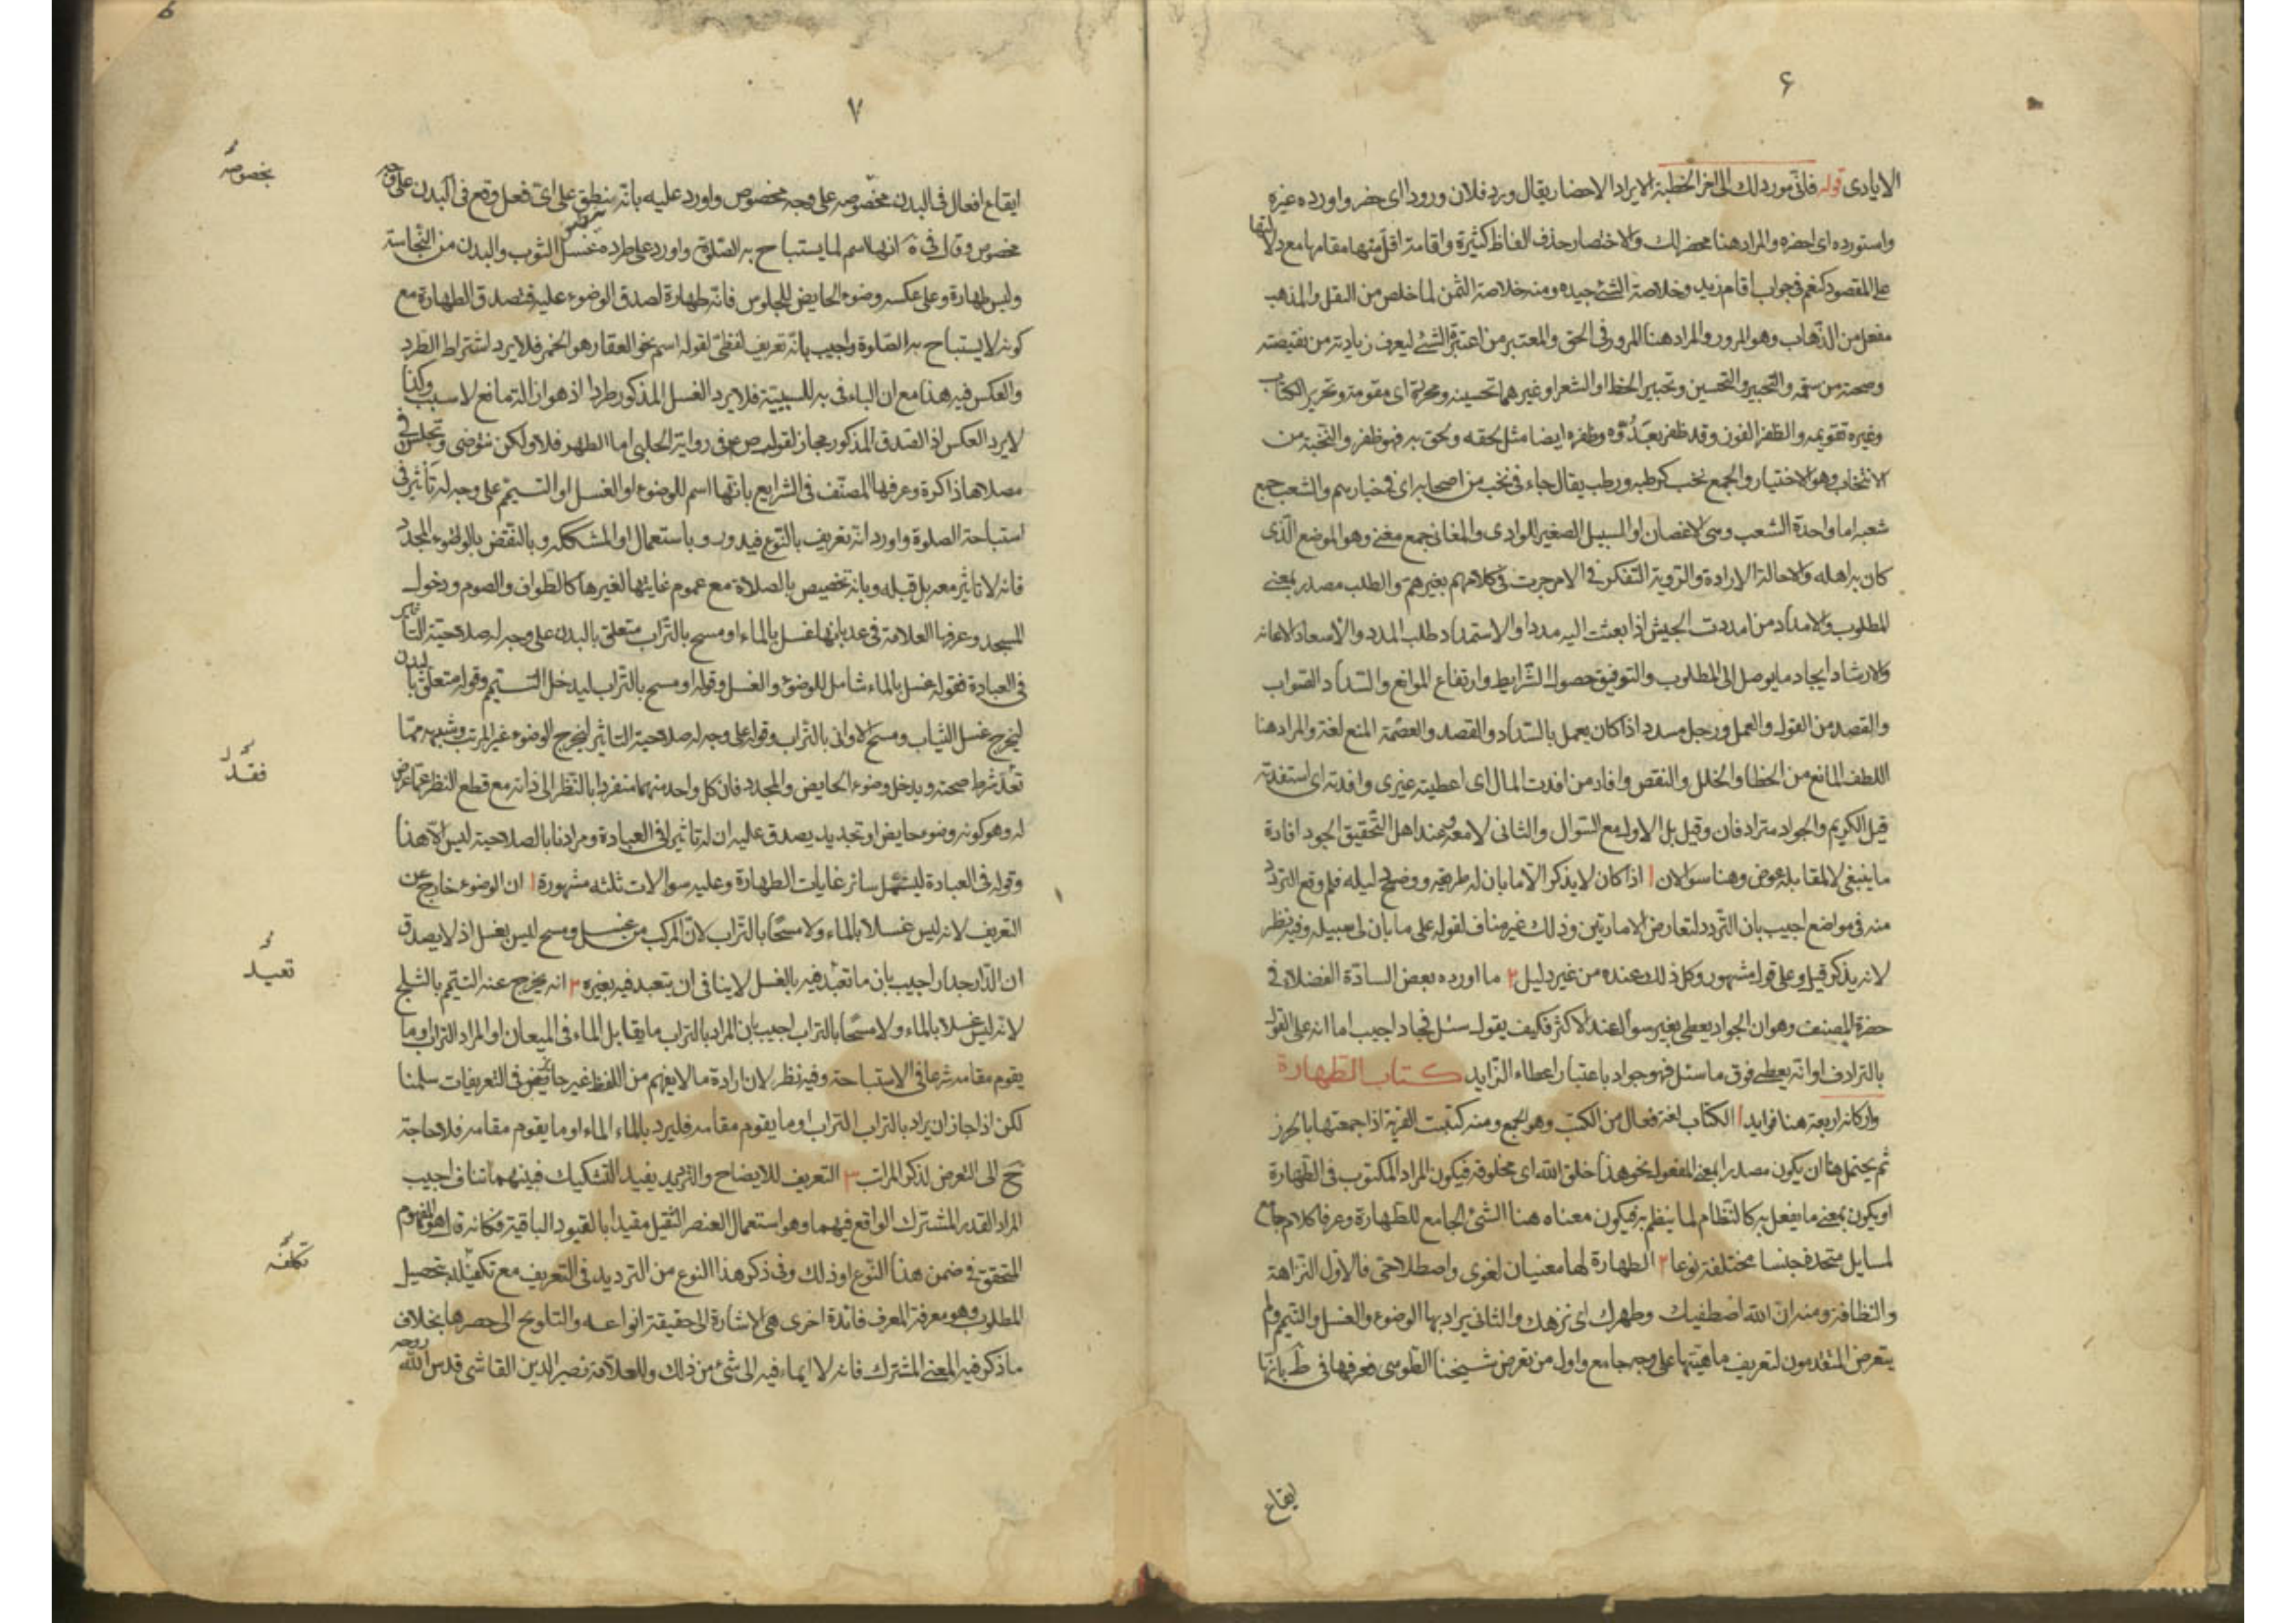 ۶
الايادى قوله فانى مورد لك الى اخر الخطبة الايراد الاحضار يقال ورد فلان ورودا اى حضر واورده غيره
واستورده اى احضره والمراد هنا محضر لك والاختصار حذف الفاظ كثيرة واقامة اقل منها مقامها مع دلالتها
على المقصود كنعم فى جواب اقام زيد وخلاصة الشئ جيده ومنه خلاصة الثمن لما خلص من الثقل والمذهب
مفعل من الذهاب وهو المرور والمراد هنا المرور فى الحق والمعتبر من اعتبر الشئ ليعرف زيادته من نقيصته
وصحته من سقمه والتحبير والتحسين وتحبير الخط او الشعر او غيرهما تحسينه ومحررة اى مقومة وتحرير الكتاب
وغيره تقويمه والظفر الفوز وقد ظفر بعدوه وظفره ايضا مثل لحقه ولحق به فهو ظفر والنخبة من
الانتخاب وهو الاختيار والجمع نخب كرطبة ورطب يقال جاء فى نخب من اصحابه اى فى خيارهم والشعب جمع
شعبة اما واحدة الشعب وهى الاغصان او السبيل الصغير للوادى والمغانى جمع مغنى وهو الموضع الذى
كان به اهله والاحالة الارادة والتروية التفكر فى الامر جرت فى كلامهم بغير همز والطلب مصدر بمعنى
المطلوب والامداد من امددت الجيش اذا بعثت اليه مددا والاستمداد طلب المدد والاسعاد الاعانة
والارشاد ايجاد ما يوصل الى المطلوب والتوفيق حصول الشرايط وارتفاع الموانع والسداد الصواب
والقصد من القول والعمل ورجل مسدد اذا كان يعمل بالسداد والقصد والعصمة المنع لغة والمراد هنا
اللطف المانع من الخطا والخلل والنقص وافاد من افدت المال اى اعطيته غيرى وافدته اى استفدته
قيل الكريم والجواد مترادفان وقيل بل الاول مع السؤال والثانى لا معه وعند اهل التحقيق الجود افادة
ما ينبغى لا لمقابلة عوض وهنا سؤالان ا اذا كان لا يذكر الا ما بان له طريقه ووضح دليله فلم وقع التردد
منه فى مواضع اجيب بان التردد لتعارض الامارتين وذلك غير مناف لقوله على ما بان لى سبيله وفيه نظر
لانه يذكر قيل وعلى قول مشهور وكل ذلك عنده من غير دليل ٢ ما اورده بعض السادة الفضلاء فى
حضرة المصنف وهو ان الجواد يعطى بغير سوال عند الاكثر فكيف يقول سئل فجاد اجيب اما انه على القول
بالترادف او انه يعطى فوق ما سئل فهو جواد باعتبار اعطاء الزايد كتاب الطهارة
واركانه اربعة هنا فوايد ا الكتاب لغة فعال من الكتب وهو الجمع ومنه كتبت القربة اذا جمعتها بالخرز
ثم يحتمل هنا ان يكون مصدرا بمعنى المفعول نحو هذا خلق الله اى مخلوقه فيكون المراد المكتوب فى الطهارة
او يكون بمعنى ما يفعل به كالنظام لما ينظم به فيكون معناه هنا الشئ الجامع للطهارة وعرفا كلام جامع
لمسايل متحدة جنسا مختلفة نوعا ٢ الطهارة لها معنيان لغوى واصطلاحى فالاول النزاهة
والنظافة ومنه ان الله اصطفيك وطهرك اى نزهك والثانى يراد بها الوضوء والغسل والتيمم ولم
يتعرض المتقدمون لتعريف ماهيتها على وجه جامع واول من تعرض شيخنا الطوسى فعرفها فى ط بانها
ايقاع
۷
ايقاع افعال فى البدن مخصوصة على وجه مخصوص واورد عليه بانه ينطبق على اى فعل وقع فى البدن على وجه
مخصوص وقال فى ة انها اسم لما يستباح به الصلوة واورد على طرده غسل الثوب والبدن من النجاسة
وليس طهارة وعلى عكسه وضوء الحايض للجلوس فانه طهارة لصدق الوضوء عليه فتصدق الطهارة مع
كونه لا يستباح به الصلوة واجيب بانه تعريف لفظى لقوله اسم نحو العقار هو الخمر فلا يرد اشتراط الطرد
والعكس فيه هذا مع ان الباء فى به للسببية فلا يرد الغسل المذكور طردا اذ هو ازالة مانع لا سبب وكذا
لا يرد العكس اذ الصدق المذكور مجاز لقول ص ع فى رواية الحلبى اما الطهر فلا ولكن تتوضى وتجلس فى
مصلاها ذاكرة وعرفها المصنف فى الشرايع بانها اسم للوضوء او الغسل او التيمم على وجه له تاثير فى
استباحة الصلوة واورد انه تعريف بالنوع فيدور وباستعمال او المشككه وبالنقض بالوضوء المجدد
فانه لا تاثير معه بل قبله وبانه تخصيص بالصلاة مع عموم غايتها لغيرها كالطواف والصوم ودخول
المسجد وعرفها العلامة فى عد بانها غسل بالماء او مسح بالتراب متعلق بالبدن على وجه له صلاحية التاثير
فى العبادة فقوله غسل بالماء شامل للوضوء والغسل وقوله او مسح بالتراب ليدخل التيمم وقوله متعلق بالبدن
ليخرج غسل الثياب ومسح الاوانى بالتراب وقوله على وجه له صلاحية التاثير ليخرج الوضوء غير المرتب وشبهه مما
فقد شرط صحته ويدخل وضوء الحايض والمجدد فان كل واحد منهما منفردا بالنظر الى ذاته مع قطع النظر عما عرض
له وهو كونه وضوء حايض او تجديد يصدق عليه ان له تاثيرا فى العبادة ومرادنا بالصلاحية ليس الا هذا
وقوله فى العبادة ليشمل سائر غايات الطهارة وعليه سوالات ثلثه مشهورة ا ان الوضوء خارج عن
التعريف لانه ليس غسلا بالماء ولا مسحا بالتراب لان المركب من غسل ومسح ليس بغسل اذ لا يصدق
ان الدار جدار اجيب بان ما تعبد فيه بالغسل لا ينافى ان يتعبد فيه بغيره ٢ انه يخرج عنه التيمم بالثلج
لانه ليس غسلا بالماء ولا مسحا بالتراب اجيب بان المراد بالتراب ما يقابل الماء فى الميعان او المراد التراب وما
يقوم مقامه شرعا فى الاستباحة وفيه نظر لان ارادة ما لا يفهم من اللفظ غير جائز فى التعريفات سلمنا
لكن اذا جاز ان يراد بالتراب التراب او ما يقوم مقامه فليرد بالماء الماء او ما يقوم مقامه فلا حاجة
ح الى التعرض لذكر المرتب ٣ التعريف للايضاح والترديد يفيد التشكيك فبينهما تناف اجيب
المراد القدر المشترك الواقع فيهما وهو استعمال العنصر الثقيل مقيدا بالقيود الباقية فكانه قال هو المفهوم
المتحقق فى ضمن هذا النوع او ذلك وفى ذكر هذا النوع من الترديد فى التعريف مع تكفله بتحصيل
المطلوب وهو معرفة المعرف فائدة اخرى هى الاشارة الى حقيقة انواعه والتلويح الى حصرها بخلاف
ما ذكر فيه المعنى المشترك فانه لا ايماء فيه الى شئ من ذلك وللعلامة نصير الدين القاشى قدس الله روحه
بخصوصه
فقد
تعبد
تكلفه